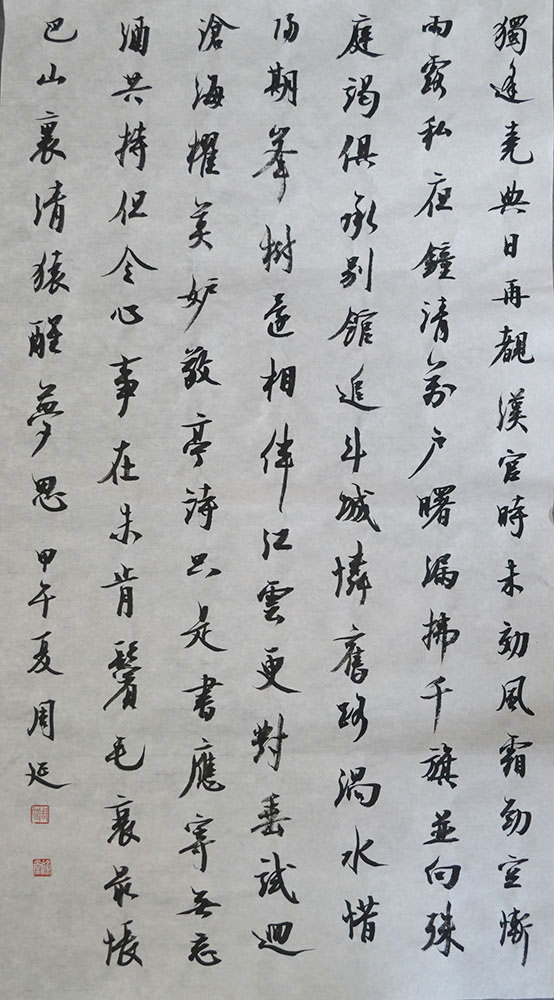 獨逢堯典日再覩漢官時未効風霜勁空慚
雨露私夜鐘清萬户曙漏拂千旗並向殊
庭謁俱承別館追斗城憐舊路渦水惜
歸期峯樹還相伴江雲更對垂試迴
滄海櫂莫妒敬亭詩只是書應寄無忘
酒共持但令心事在未肯鬢毛衰最悵
巴山裏清猿醒夢思 甲午夏周延